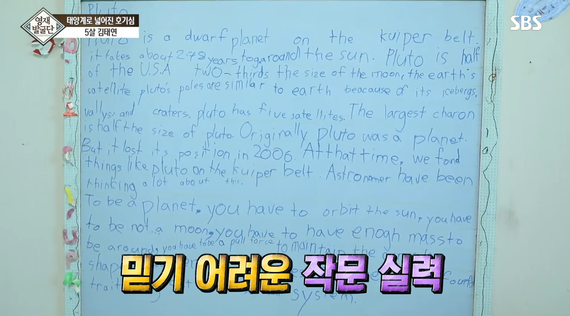 영재발굴단
태양계로 넓어진 호기심
5살 김태연
SBS
Pluto
Pluto is a dwarf planet on the kuiper belt.
it takes about years to go around the sun. Pluto is half
of the U.S.A two-thirds the size of the moon, the earth's
satellite pluto's poles are similar to earth beacause of its icebergs,
vallys and craters, pluto has five satellites. The largest charon
is half the size of pluto Originally pluto was a planet.
But it lost its position in 2006 At that time, we fond
things like pluto on the kuiper belt Astronomer have been
thinking a lot about this.
To be a planet, you have to orbit the sun, you have
to be not a moon, you have to have enogh mass to
be around, you have a pull force to maintain the
믿기 어려운 작문 실력
system.